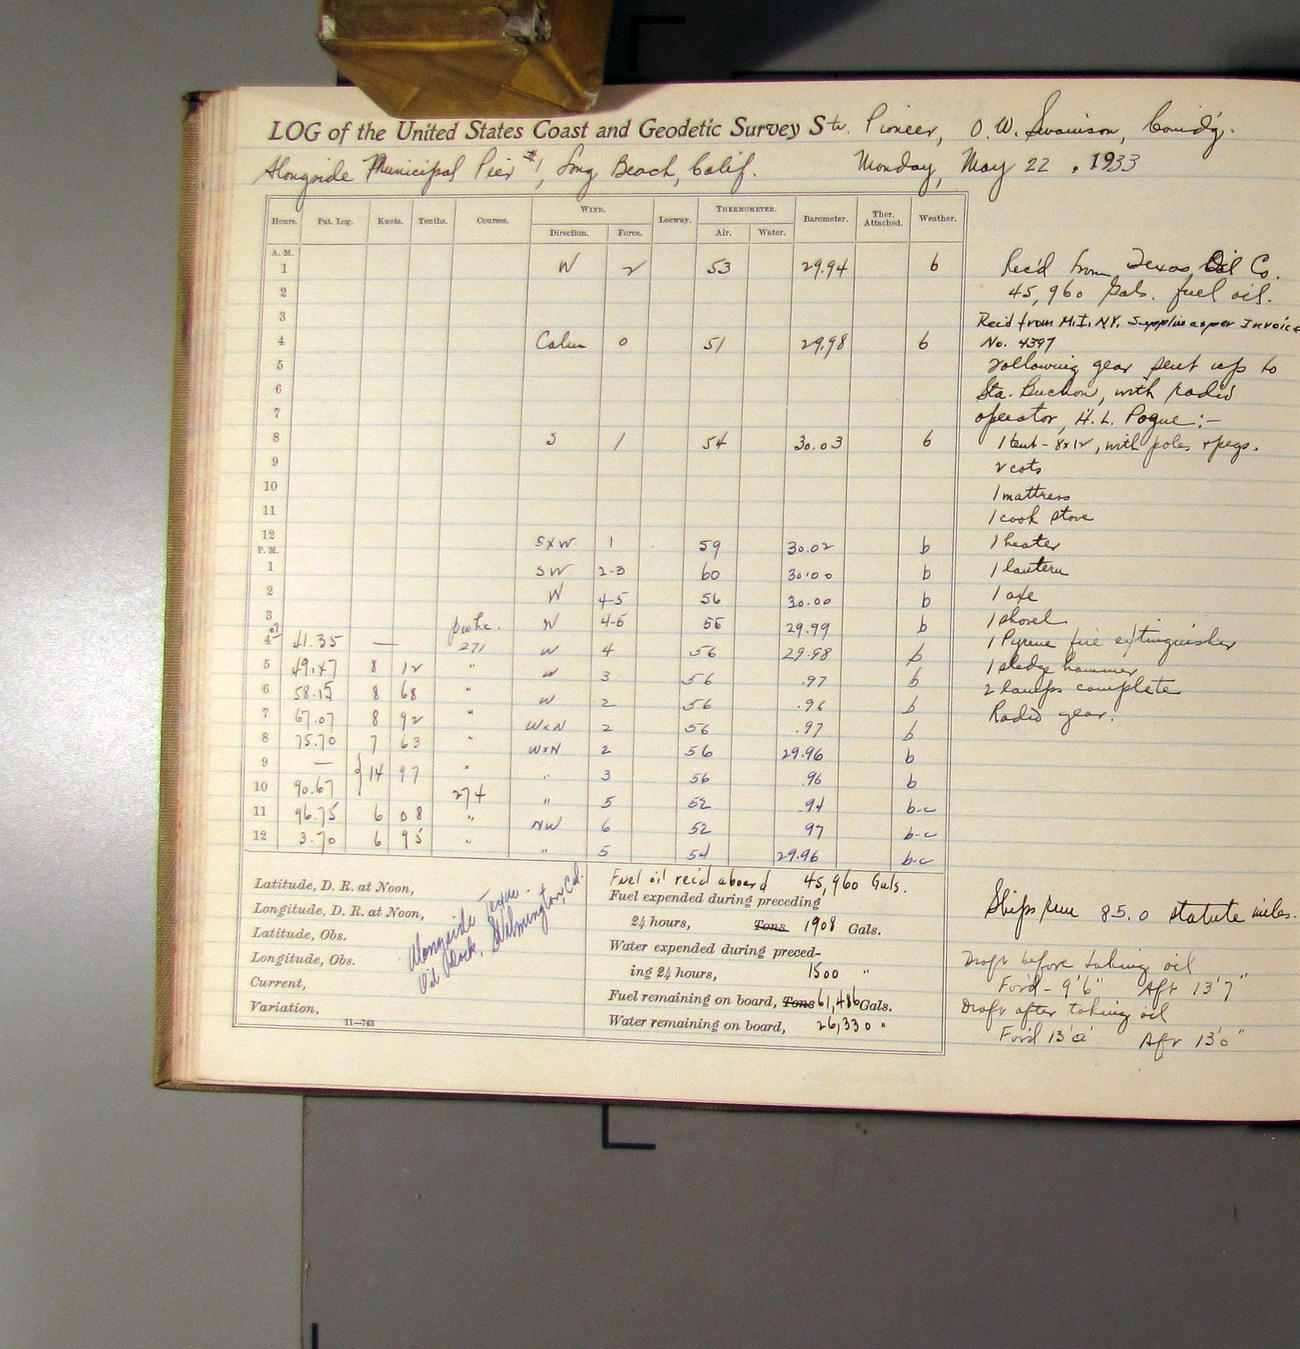 LOG of the United States Coast and Geodetic Survey Str. Pioneer, O. W. Swainson, Comd'g.
Alongside Municipal Pier #1, Long Beach, Calif. Monday, May 22, 1933
Hours. Pat. Log. Knots. Tenths. Courses. WIND. Leeway. THERMOMETER. Barometer. Ther. Attached. Weather.
Direction. Force. Air. Water.
A. M.
1 W 2 53 29.94 b
2
3
4 Calm 0 51 29.98 b
5
6
7
8 S 1 54 30.03 b
9
10
11
12 SxW 1 59 30.02 b
P. M.
1 SW 2-3 60 30.00 b
2 W 4-5 56 30.00 b
3 W 4-5 55 29.99 b
4 07 41.35 — psohc. 271 W 4 56 29.98 b
5 49.47 8 12 " W 3 56 .97 b
6 58.15 8 68 " W 2 56 .96 b
7 67.07 8 92 " WxN 2 56 .97 b
8 75.70 7 63 " WxN 2 56 29.96 b
9 — " " 3 56 .96 b
10 90.67 14 97 274 " 5 52 .94 b-c
11 96.75 6 08 " NW 6 52 97 b-c
12 3.70 6 95 " " 5 54 29.96 b-c
Rec'd from Texas Oil Co.
45,960 Gals. fuel oil.
Rec'd from M.I. NY. Supplies as per Invoice
No. 4397
Following gear sent up to
Sta. Buchon, with radio
operator, H. L. Pogue:-
1 tent - 8x12, with poles + pegs.
2 cots
1 mattress
1 cook stove
1 heater
1 lantern
1 axe
1 shovel
1 Pyrene fire extinguisher
1 sledge hammer
2 lamps complete
Radio gear.
Latitude, D. R. at Noon,
Longitude, D. R. at Noon,
Latitude, Obs.
Longitude, Obs.
Current,
Variation,
11—743
Alongside Texas
Oil Dock, Wilmington, Cal.
Fuel oil rec'd aboard 45,960 Gals.
Fuel expended during preceding
24 hours, Tons 1908 Gals.
Water expended during preced-
ing 24 hours, 1500 "
Fuel remaining on board, Tons 61,486 Gals.
Water remaining on board, 26,330 "
Ships run 85.0 statute miles.
Draft before taking oil
For'd - 9'6" Aft 13'7"
Draft after taking oil
For'd 13'0" Aft 13'0"